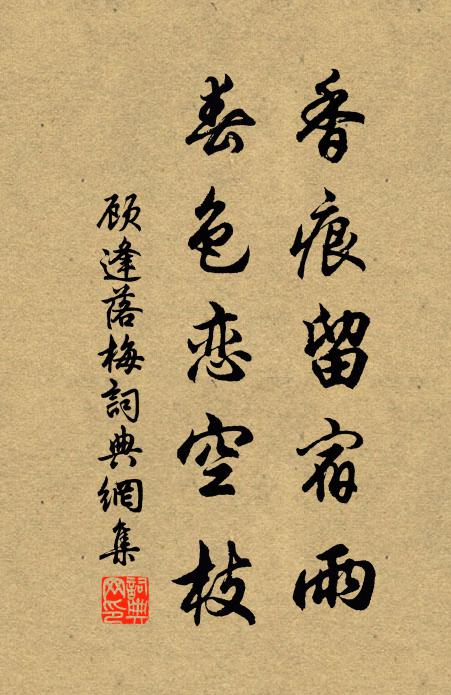 香痕留宿雨
春色恋空枝
顾逢落梅詞典網集
詞典网印